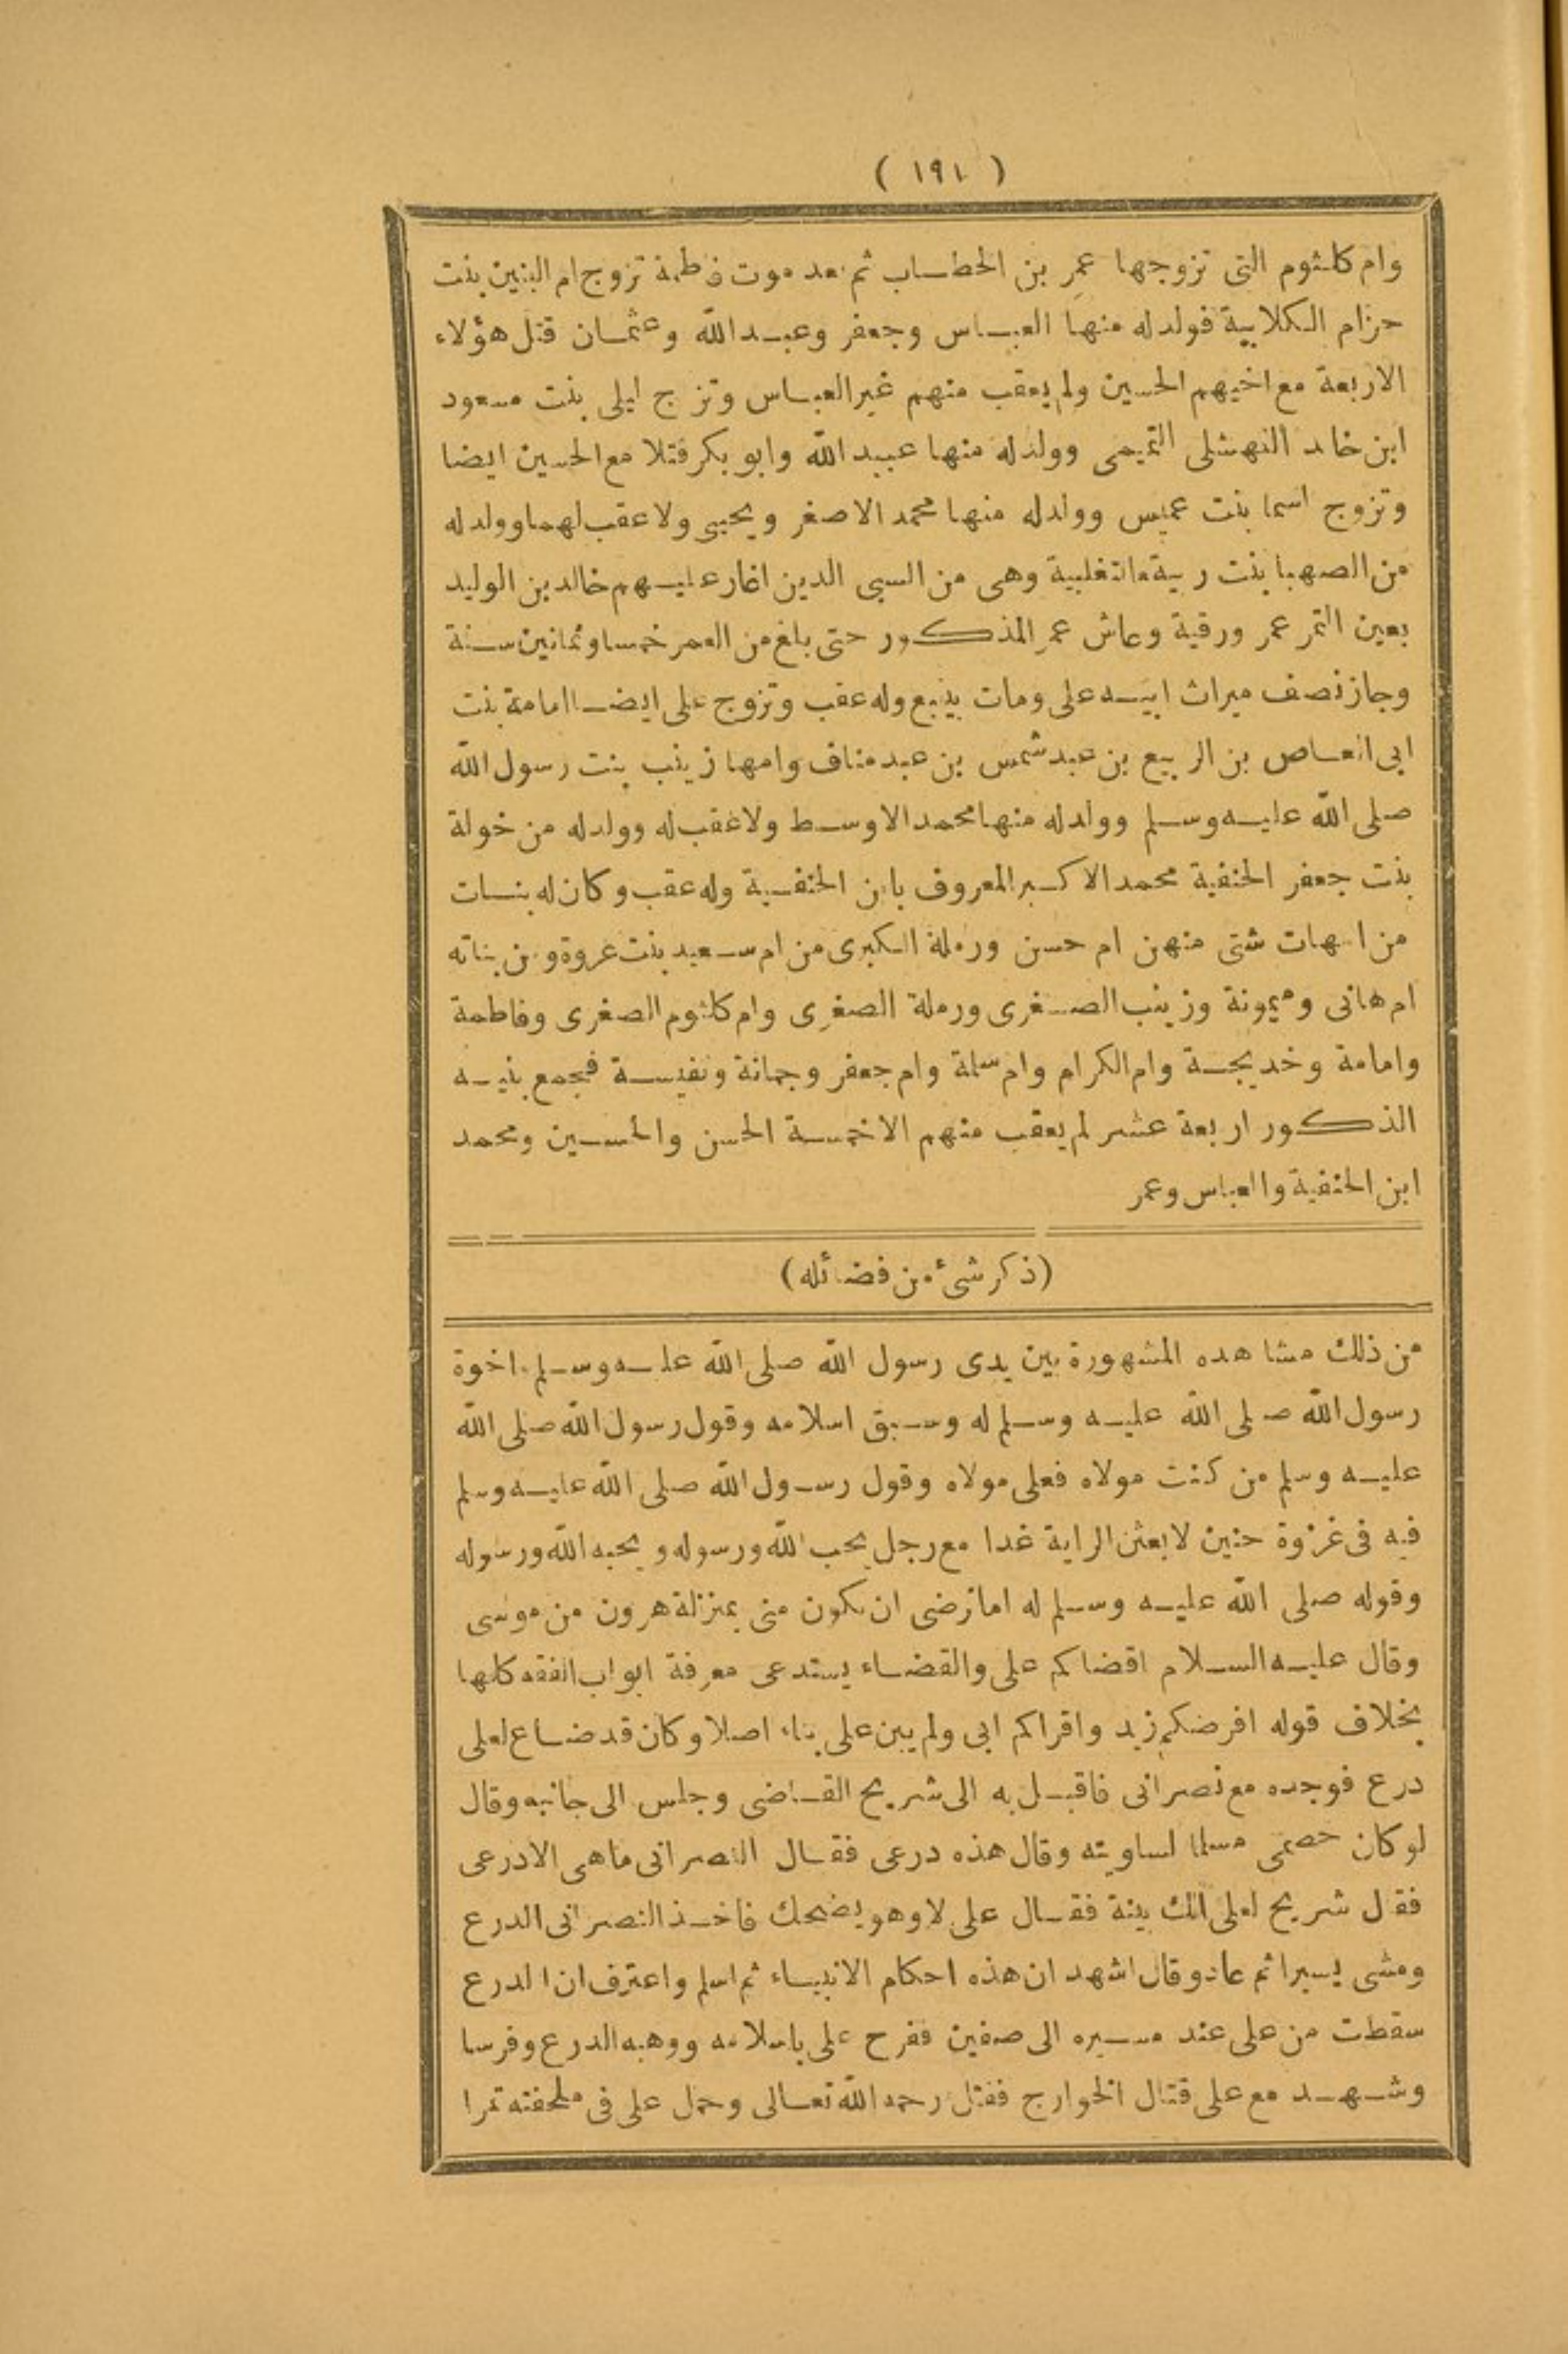 ( ١٩١ )
وام كلثوم التى تزوجها عمر بن الخطاب ثم بعد موت فاطمة تزوج ام البنين بنت
حزام الكلابية فولد له منها العباس وجعفر وعبد الله وعثمان قتل هؤلاء
الاربعة مع اخيهم الحسين ولم يعقب منهم غير العباس وتزوج ليلى بنت مسعود
ابن خالد النهشلى التميمى وولد له منها عبيد الله وابو بكر قتلا مع الحسين ايضا
وتزوج اسما بنت عميس وولد له منها محمد الاصغر ويحيى ولا عقب لهما وولد له
من الصهبا بنت ربيعة التغلبية وهى من السبى الدين اغار عليهم خالد بن الوليد
بعين التمر عمر ورقية وعاش عمر المذكور حتى بلغ من العمر خمسا وثمانين سنة
وحاز نصف ميراث ابيه على ومات بينبع وله عقب وتزوج على ايضا امامة بنت
ابى العاص بن الربيع بن عبد شمس بن عبد مناف وامها زينب بنت رسول الله
صلى الله عليه وسلم وولد له منها محمد الاوسط ولا عقب له وولد له من خولة
بنت جعفر الحنفية محمد الاكبر المعروف بابن الحنفية وله عقب وكان له بنات
من امهات شتى منهن ام حسن ورملة الكبرى من ام سعيد بنت عروة ومن بناته
ام هانى وميمونة وزينب الصغرى ورملة الصغرى وام كلثوم الصغرى وفاطمة
وامامة وخديجة وام الكرام وام سلمة وام جعفر وجمانة ونفيسة فجمع بنيه
الذكور اربعة عشر لم يعقب منهم الا خمسة الحسن والحسين ومحمد
ابن الحنفية والعباس وعمر
(ذكر شئ من فضائله)
من ذلك مشاهده المشهورة بين يدى رسول الله صلى الله عليه وسلم اخوة
رسول الله صلى الله عليه وسلم له وسبق اسلامه وقول رسول الله صلى الله
عليه وسلم من كنت مولاه فعلى مولاه وقول رسول الله صلى الله عليه وسلم
فيه فى غزوة حنين لابعثن الراية غدا مع رجل يحب الله ورسوله ويحبه الله ورسوله
وقوله صلى الله عليه وسلم له اما ترضى ان تكون منى بمنزلة هرون من موسى
وقال عليه السلام اقضاكم على والقضاء يستدعى معرفة ابواب الفقه كلها
بخلاف قوله افرضكم زيد واقراكم ابى ولم يبن على بناء اصلا وكان قد ضاع لعلى
درع فوجده مع نصرانى فاقبل به الى شريح القاضى وجلس الى جانبه وقال
لو كان خصمى مسلما لساويته وقال هذه درعى فقال النصرانى ما هى الا درعى
فقال شريح لعلى الك بينة فقال على لا وهو يضحك فاخذ النصرانى الدرع
ومشى يسيرا ثم عاد وقال اشهد ان هذه احكام الانبياء ثم اسلم واعترف ان الدرع
سقطت من على عند مسيره الى صفين ففرح على باسلامه ووهبه الدرع وفرسا
وشهد مع على قتال الخوارج فقتل رحمه الله تعالى وحمل على فى ملحفته تمرا